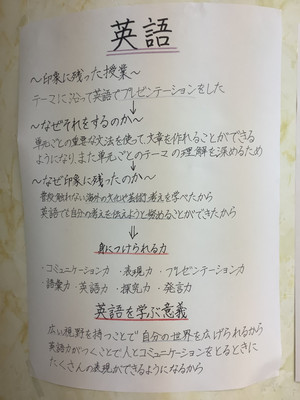 英語
〜印象に残った授業〜
テーマに沿って英語でプレゼンテーションをした
↓
〜なぜそれをするのか〜
単元ごとの重要な文法を使って、文章を作れることができる
ようになり、また単元ごとのテーマの理解を深めるため
↓
〜なぜ印象に残ったのか〜
普段触れない海外の文化や英語で考えを学べたから
英語でも自分の考えを伝えようと努めることができたから
↓
身につけられる力
・コミュニケーション力・表現力・プレゼンテーション力
・語彙力・英語力・探究力・発言力
英語を学ぶ意義
広い視野を持つことで自分の世界を広げられるから
英語力がつくことで人とコミュニケーションをとるときに
たくさんの表現ができるようになるから